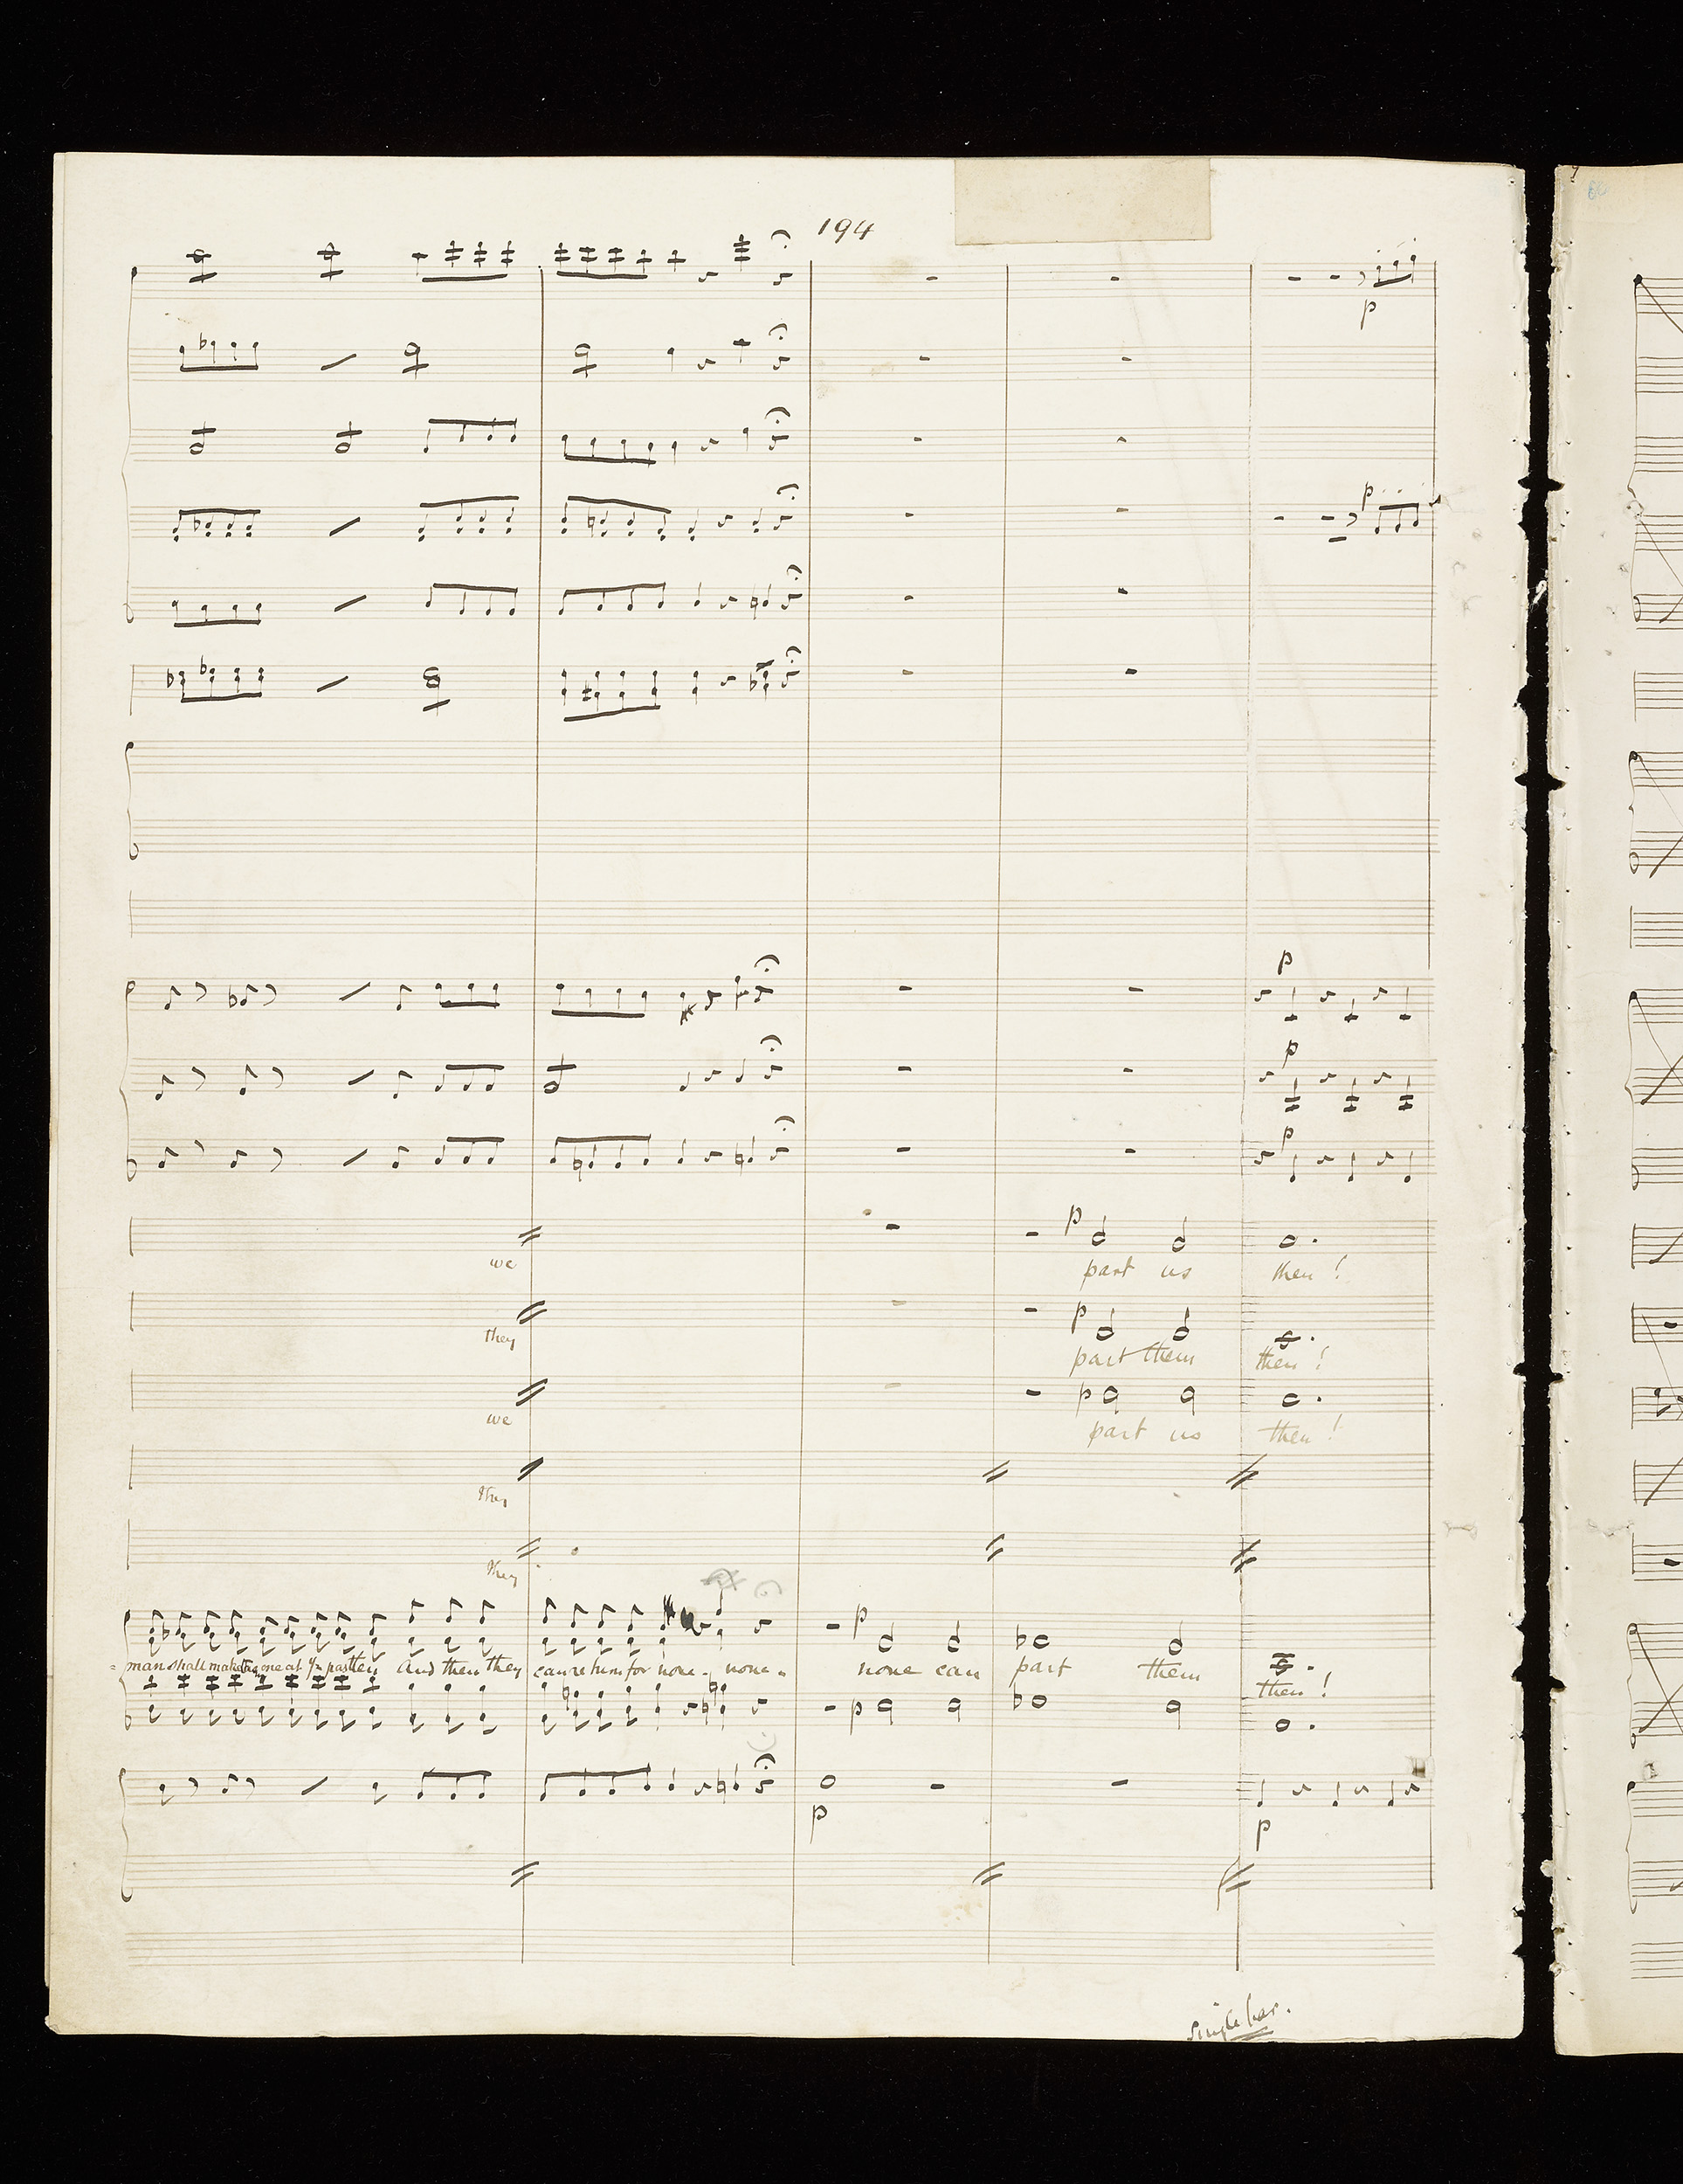 194
p
p
p
p
p
we
p
part us then!
they
p
part them then!
we
p
part us then!
they
they
p
= man shall make them one at ye parten And then they can return for none - none - none can part them then!
p
p
p
single bar.